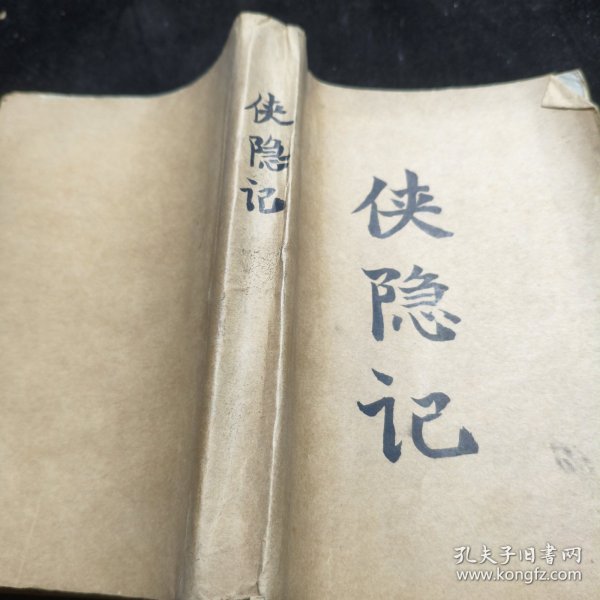 侠隐记
侠隐记
孔夫子旧书网
www.kongfz.com